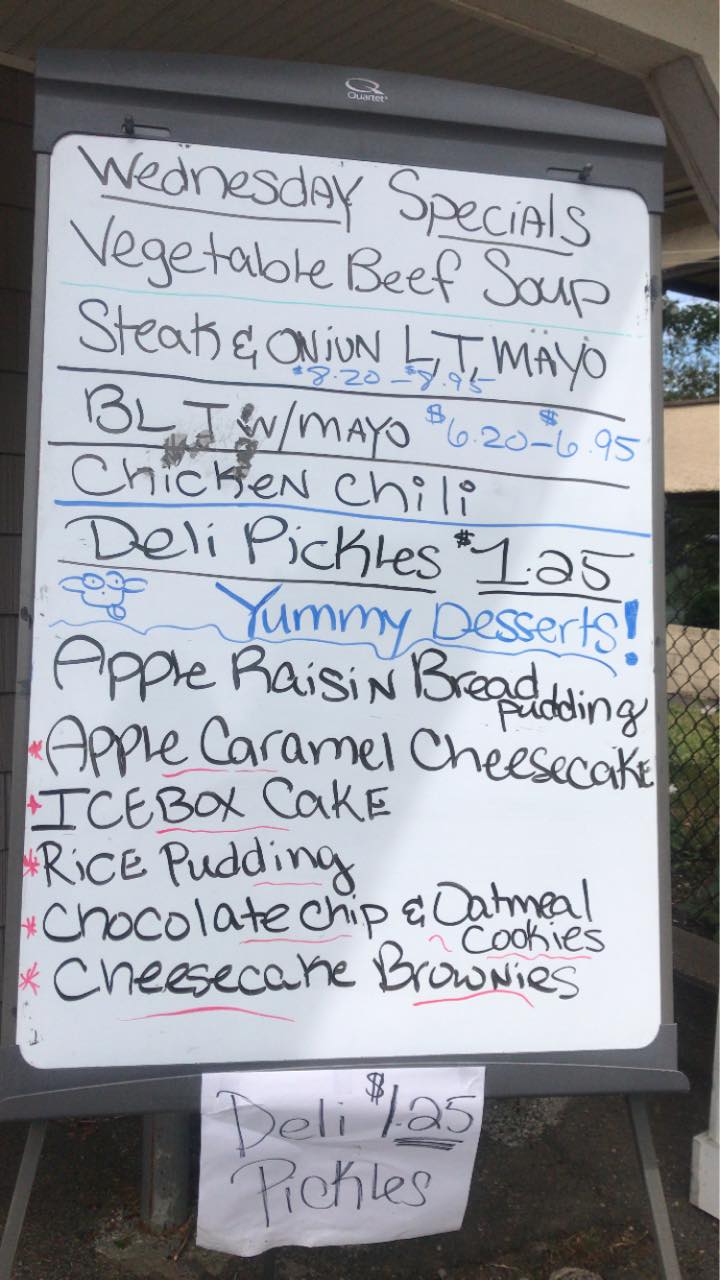 Quartet
Wednesday Specials
Vegetable Beef Soup
Steak & ONiUN L,T, MAYO
$8.20 - $8.95
BLT W/MAYO $6.20 - $6.95
ChickeN Chili
Deli Pickles $1.25
Yummy Desserts!
Apple RaisiN Bread
pudding
* Apple Caramel Cheesecake
* ICEBOX CaKE
* RiCE Pudding
* Chocolate chip & Oatmeal
Cookies
* Cheesecake BrowNies
Deli $1.25
Pickles